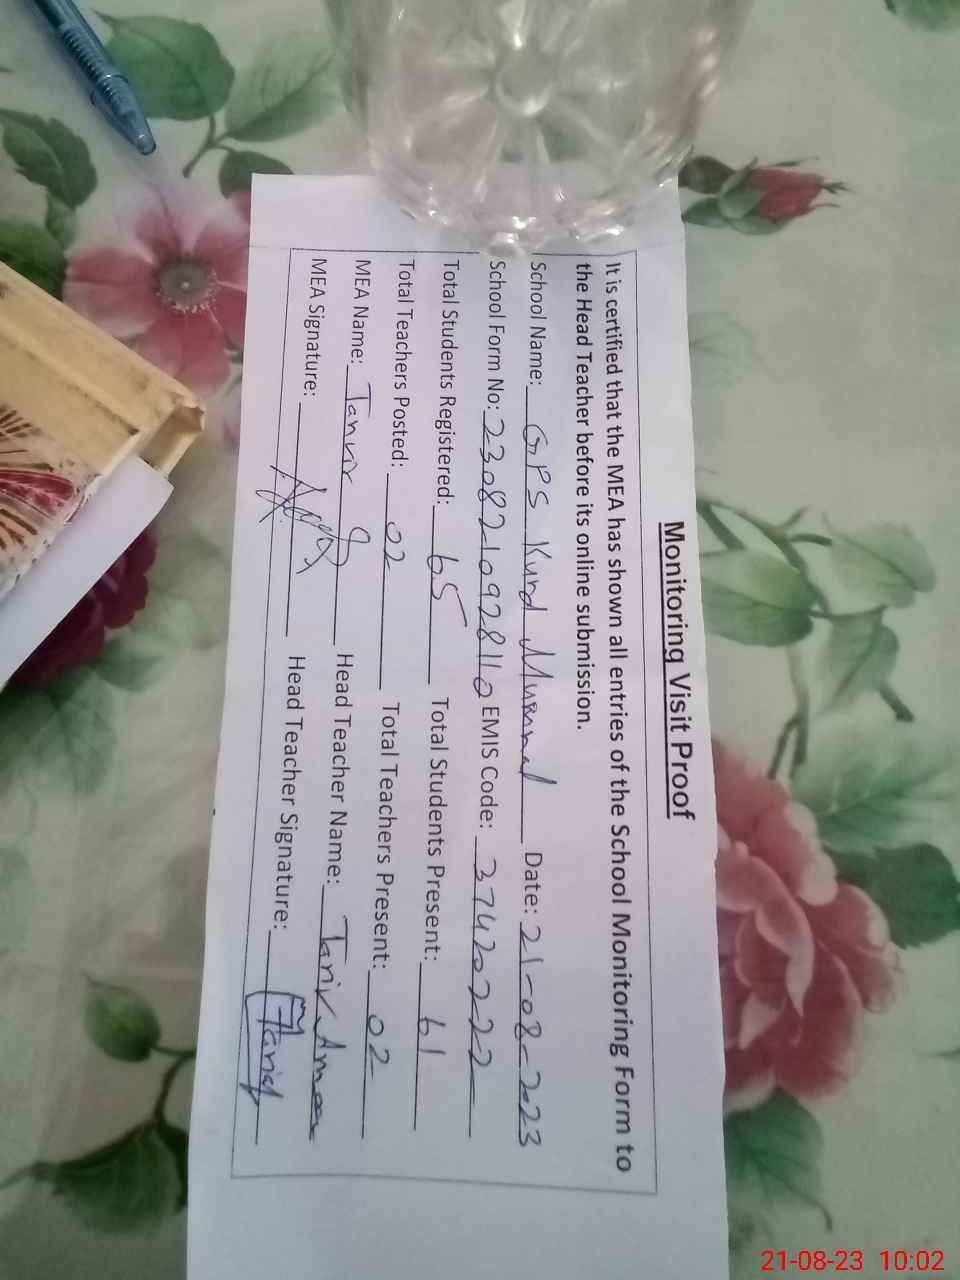 Monitoring Visit Proof
It is certified that the MEA has shown all entries of the School Monitoring Form to
the Head Teacher before its online submission.
School Name: GPS Kund Mummal Date: 21-08-2023
School Form No: 230821092811 EMIS Code: 37420222
Total Students Registered: 65 Total Students Present: 61
Total Teachers Posted: 02 Total Teachers Present: 02
MEA Name: Tanvir Head Teacher Name: Tariv
MEA Signature: Head Teacher Signature: Tariq
21-08-23 10:02